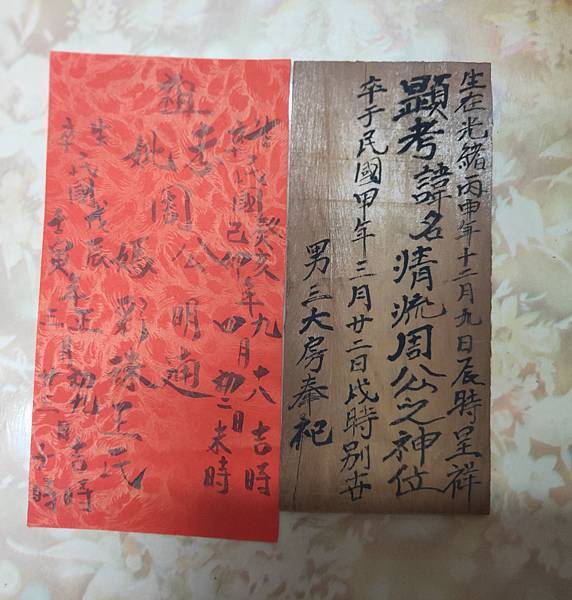 生在光緒丙申年十二月九日辰時呈祥
顯考諱名清流周公之神位
卒于民國甲年三月廿二日戌時別世
男三大房奉祀
祖
生民國癸亥年九月十八吉時
卒民國己卯年四月初二日未時
考周公明通
妣周媽彩珠王氏
生民國戊辰年正月初九日吉時
卒民國壬寅年三月廿三日子時